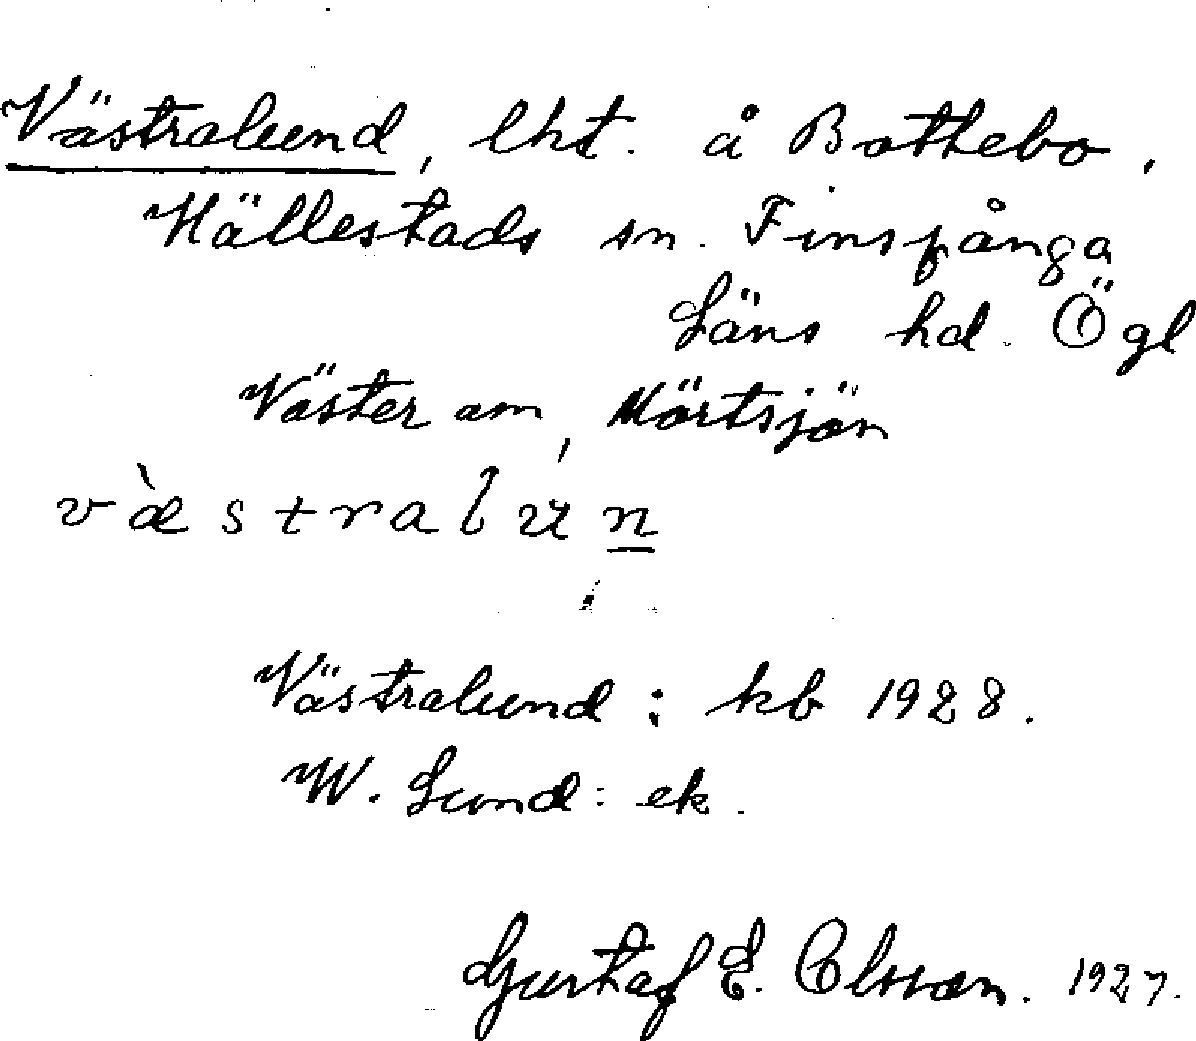 Västralund, lht. å Bottebo,
Hällestads sn. Finspånga
Läns hd. Ögl
Väster om, Mörtsjön
v æ̀ s t r a l u n
Västralund: kb 1928.
W. Lund: ek.
Gustaf E. Olsson. 1927.